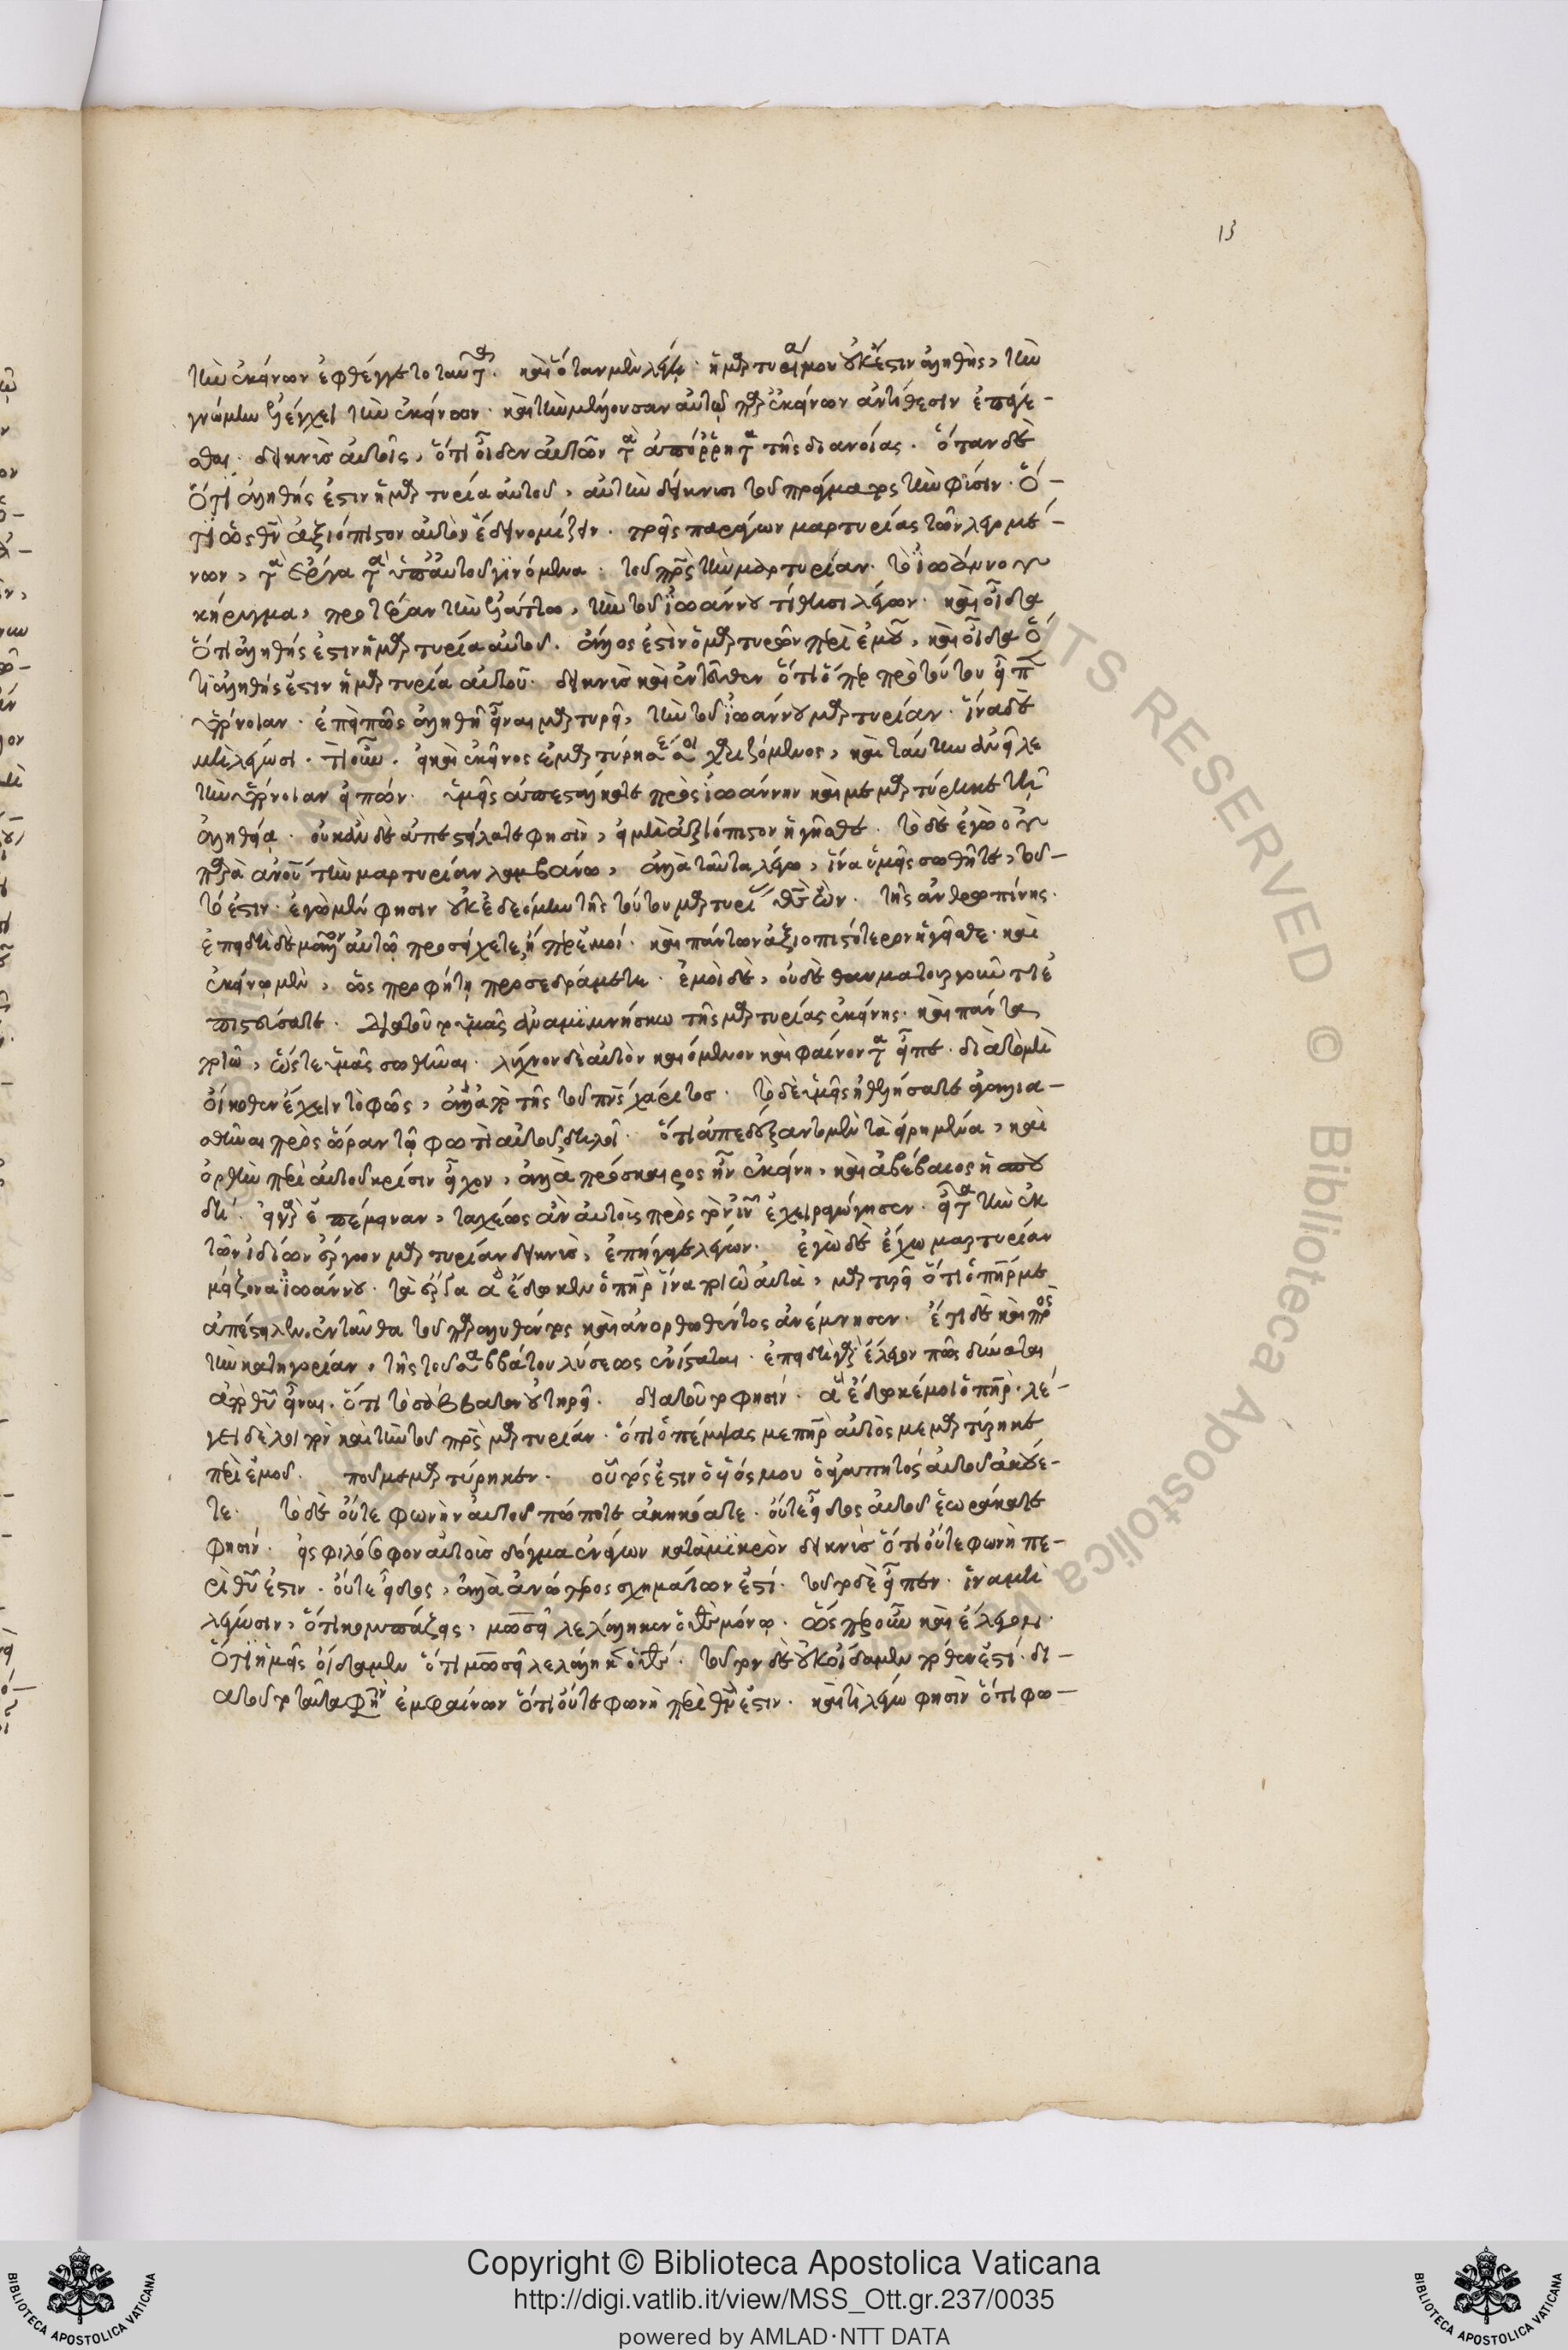 13
τὴν ἐκείνων ἐφθέγγετο ταῦτα. καὶ ὅταν μὲν λέγῃ· ἡ μαρτυρία μου οὐκ ἔστιν ἀληθὴς, τὴν
γνώμην ἐλέγχει τὴν ἐκείνων· καὶ τὴν μέλλουσαν αὐτῷ παρ ἐκείνων ἀντίθεσιν ἐπάγε-
σθαι. δεικνὺς αὐτοῖς, ὅτι οἶδεν αὐτῶν τὰ ἀπόρρητα τῆς διανοίας. ὅταν δὲ
ὅτι ἀληθής ἐστιν ἡ μαρτυρία αὐτοῦ, αὐτὴν δείκνυσι τοῦ πράγματος τὴν φύσιν. ὅ-
τι ὡς θν ἀξιόπιστον αὐτὸν ἔδει νομίζειν. τρεῖς παράγων μαρτυρίας τῶν λεγομέ-
νων, τὰ ἔργα τὰ ὑπ αὐτοῦ γινόμενα. τοῦ πρς τὴν μαρτυρίαν. τὸ ἰωάννου
κήρυγμα, προτέραν τὴν ἐλάττω, τὴν τοῦ ἰωάννου τίθησι λέγων. καὶ οἶδα
ὅτι ἀληθής ἐστιν ἡ μαρτυρία αὐτοῦ. ἄλλος ἐστὶν ὁ μαρτυρῶν περὶ ἐμοῦ, καὶ οἶδα ὅ
τι ἀληθής ἔστιν ἡ μαρτυρία αὐτοῦ.
μὴ λέγωσι.
τὴν ὑπόνοιαν εἰπών. ὑμεῖς ἀπεστάλκατε πρὸς ἰωάννην καὶ μεμαρτύρηκε τῇ
ἀληθείᾳ. οὐκ ἂν δὲ ἀπεστείλατε φησὶν, εἰ μὴ ἀξιόπιστον ἡγεῖσθε. τὸ δὲ ἐγὼ οὐ
παρὰ ἀνου τὴν μαρτυρίαν λαμβάνω, ἀλλὰ ταῦτα λέγω, ἵνα ὑμεῖς σωθῆτε, τοῦ-
τό ἐστιν. ἐγὼ μέν φησιν οὐκ ἐδεόμην τῆς τούτου μαρτυρίας θς ὢν. τῆς ἀνθρωπίνης.
ἐπειδὴ δὲ μᾶλλον αὐτῷ προσέχετε, ἤπερ ἐμοί. καὶ πάντων ἀξιοπιστότερον ἡγεῖσθε. καὶ
ἐκείνῳ μὲν, ὡς προφήτῃ προσεδράμετε. ἐμοὶ δὲ, οὐδὲ θαυματουργοῦντι ἐ
πιστεύσατε. διατοῦτο ὑμᾶς ἀναμιμνήσκω τῆς μαρτυρίας ἐκείνης. καὶ πάντα
ποιῶ, ὥστε ὑμᾶς σωθῆναι. λύχνον δὲ αὐτὸν καιόμενον καὶ φαίνοντα εἶπε. διὰ τὸ μὴ
οἴκοθεν ἔχειν τὸ φῶς, ἀλλ ἀπὸ τῆς τοῦ πνς χάριτος. τὸ δὲ ὑμεῖς ἠθελήσατε ἀγαλλια-
σθῆναι πρὸς ὥραν τῷ φωτὶ αὐτοῦ, δηλοῖ. ὅτι ἀπεδέξαντο μὲν τὰ εἰρημένα, καὶ
ὀρθὴν περὶ αὐτοῦ κρίσιν εἶχον, ἀλλὰ πρόσκαιρος ἦν ἐκείνη, καὶ ἀβέβαιος ἡ σπου
δή. ταχέως ἂν αὐτοὺς πρὸς τὸν ιν ἐχειραγώγησεν. εἶτα τὴν ἐκ
τῶν ἰδίων ἔργων μαρτυρίαν δεικνὺς, ἐπήγαγε λέγων. ἐγὼ δὲ ἔχω μαρτυρίαν
μείζονα ἰωάννου. τὰ ἔργα ἃ ἔδωκεν ὁ πηρ ἵνα ποιῶ αὐτὰ, μαρτυρεῖ ὅτι ὁ πηρ με
ἀπέστειλεν. ἐνταῦθα τοῦ παραλυθέντος καὶ ἀνορθωθέντος ἀνέμνησεν. ἔτι δὲ καὶ πρὸς
τὴν κατηγορίαν, τῆς τοῦ σαββάτου λύσεως ἐνίσταται. ἐπειδὴ γὰρ ἔλεγον πῶς δύναται
ἀπὸ θυ εἶναι. ὅτι τὸ σάββατον οὐ τηρεῖ. διατοῦτο φησίν. ἃ ἔδωκέ μοι ὁ πηρ. λέ-
γει δὲ λοιπὸν καὶ τὴν τοῦ πρς μαρτυρίαν. ὅτι ὁ πέμψας με πηρ αὐτὸς μεμαρτύρηκε
περὶ ἐμοῦ. ποῦ μεμαρτύρηκεν. οὗτός ἐστιν ὁ υἱός μου ὁ ἀγαπητός αὐτοῦ ἀκούε-
τε. τὸ δὲ οὔτε φωνὴν αὐτοῦ πώποτε ἀκηκόατε. οὔτε εἶδος αὐτοῦ ἑωράκατε
φησίν. εἰς φιλόσοφον αὐτοὺς δόγμα ἐνάγων κατὰ μικρὸν δεικνὺς ὅτι οὔτε φωνὴ πε-
ρὶ θν ἐστιν. οὔτε εἶδος, ἀλλὰ ἀνώτερος σχημάτων ἐστί. τοῦτο δὲ εἶπεν. ἵνα μὴ
λέγωσιν, ὅτι κομπάζεις, μωσῇ λελάληκεν ὁ θς μόνῳ. ὥσπερ οὖν καὶ ἔλεγον.
ὅτι ἡμεῖς οἴδαμεν ὅτι μωσῇ λελάληκεν ὁ θς. τοῦτον δὲ οὐκ οἴδαμεν πόθεν ἐστί. δι-
ατοῦτο ταῦτα φησὶν ἐμφαίνων ὅτι οὔτε φωνὴ περὶ θν ἔστιν. καὶ τί λέγω φησὶν ὅτι φω-
Copyright © Biblioteca Apostolica Vaticana
http://digi.vatlib.it/view/MSS_Ott.gr.237/0035
powered by AMLAD·NTT DATA
BIBLIOTECA APOSTOLICA VATICANA
BIBLIOTECA APOSTOLICA VATICANA